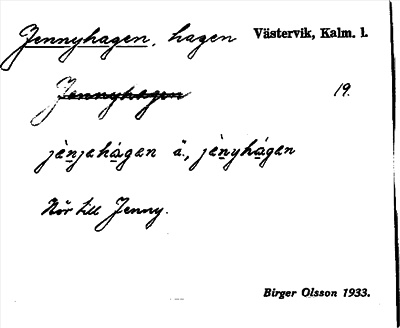 Jennyhagen, hagen Västervik, Kalm. l.
Jennyhagen 19.
jènjehágen ä., jènyhágen
Hör till Jenny.
Birger Olsson 1933.